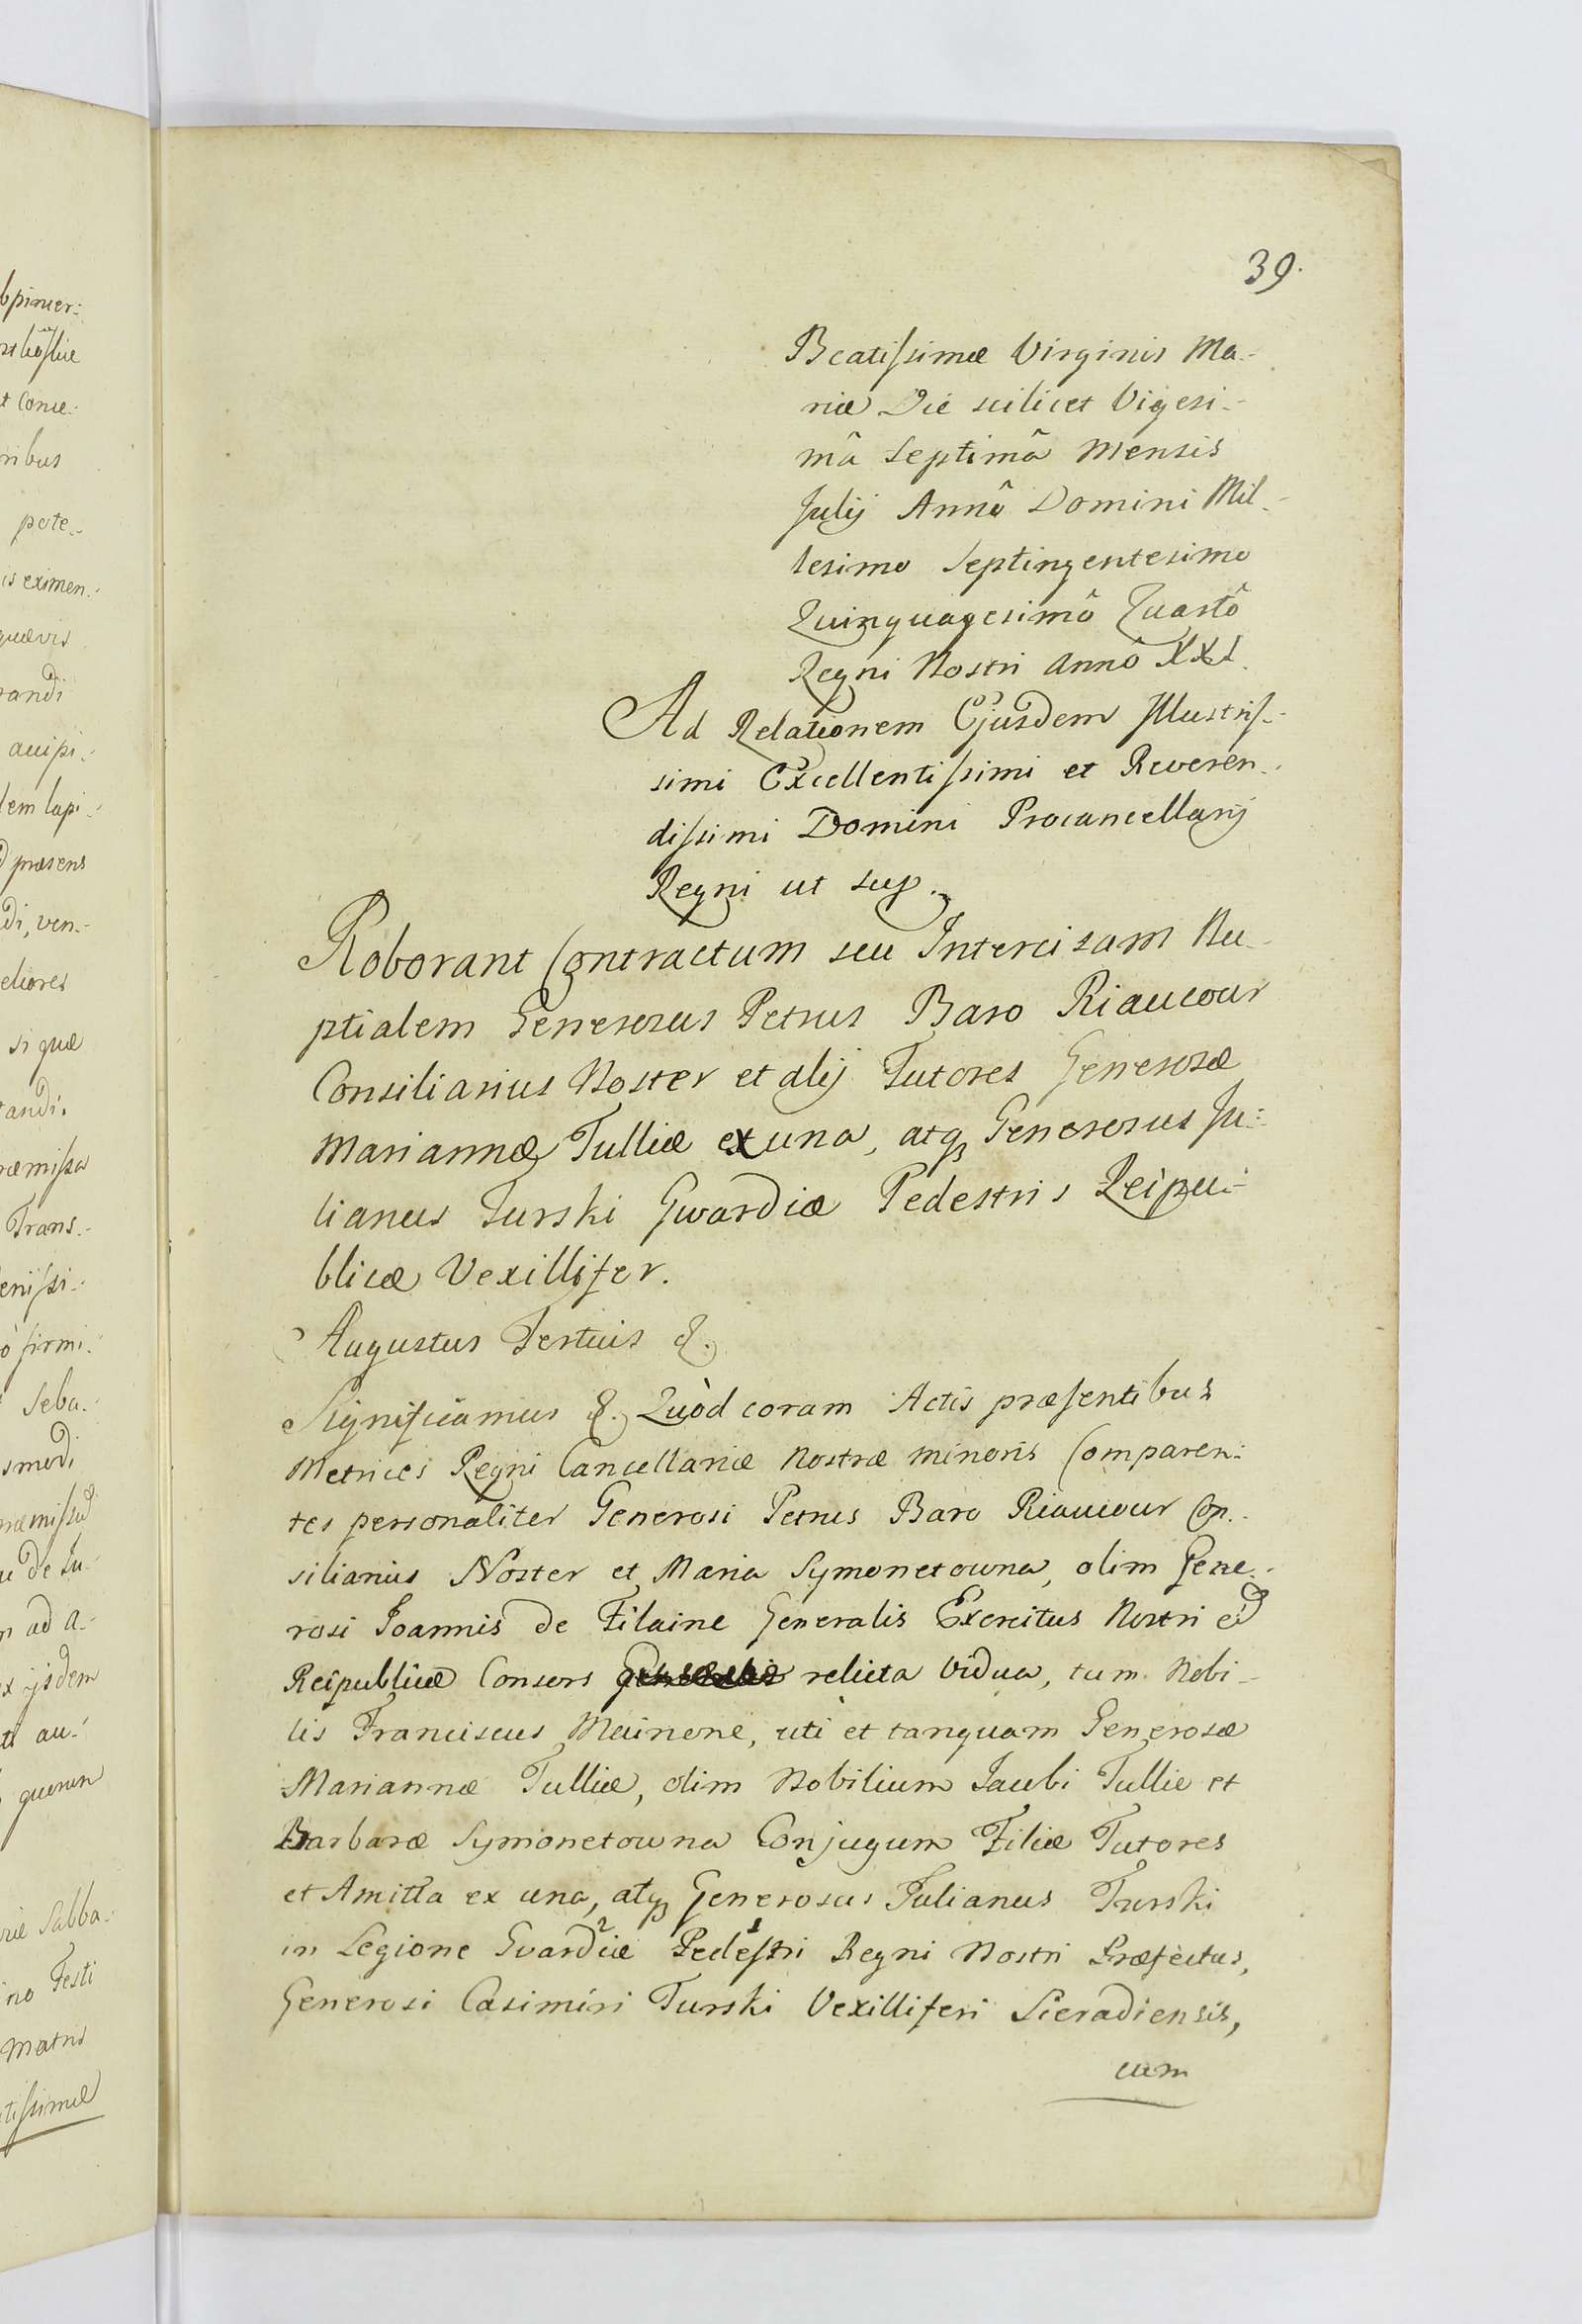 bpimer:
t conce.
ribus
pote.-
is eximen.-
quævis
randi
accipi.-
dem lapi.-
præsens
di, ven.-
eliores
si quæ
tandi.
ræmissa
Trans.-
enissi.-
ò firmi.
Seba.-
smodi
ræmissa
de Ju.-
n ad A.-
ex ijsdem
au.-
querun
riæ Sabba.-
ino Festi
Matris
tissimæ
39.
Beatissimæ Virginis Ma.-
riæ Die scilicet Vigesi.-
mâ Septimâ Mensis
Julij Annô Domini Mil.-
lesimo Septingentesimo
Quinquagesimô Quartô
Regni Nostri Annô XXI.
Ad Relationem Ejusdem Illustris.-
simi Excellentissimi et Reveren.-
dissimi Domini Procancellarij
Regni ut sup.
Roborant Contractum seu Intercisam Nu.-
ptialem Generosus Petrus Baro Riaucour
Consiliarius Noster et alij Tutores Generosæ
Mariannæ Tulliæ ex una, atq; Generosus Ju:-
lianus Turski Gwardiæ Pedestris Reipu.-
blicæ Vexillifer.
Augustus Tertius &.
Significamus &. Quòd coram Actis præsentibus
Metrices Regni Cancellariæ Nostræ minoris Comparen:
tes personaliter Generosi Petrus Baro Riaucour Con.-
siliarius Noster et Maria Symonetowna, olim Gene.-
rosi Joannis de Filaine Generalis Exercitus Nostri et
Reipublicæ Consors relicta Vidua, tum Nobi.-
lis Franciscus Mainone, uti et tanquam Generosæ
Mariannæ Tulliæ, olim Nobilium Jacobi Tullie et
Barbaræ Symonetowna Conjugum Filiæ Tutores
et Amitta ex una, atq; Generosus Julianus Turski
in Legione Gvardiæ 2 Pedestri 1 Regni Nostri Præfectus,
Generosi Casimiri Turski Vexilliferi Sieradiensis,
cum